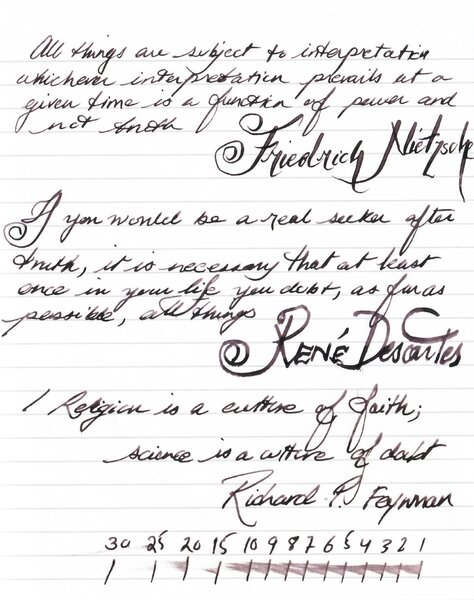 All things are subject to interpretation
whichever interpretation prevails at a
given time is a function of power and
not truth
Friedrich Nietzsche
If you would be a real seeker after
truth, it is necessary that at least
once in your life you debt, as far as
possible, all things
René Descartes
Religion is a culture of faith;
science is a culture of dabt
Richard P. Feynman
30 25 20 15 10 9 8 7 6 5 4 3 2 1